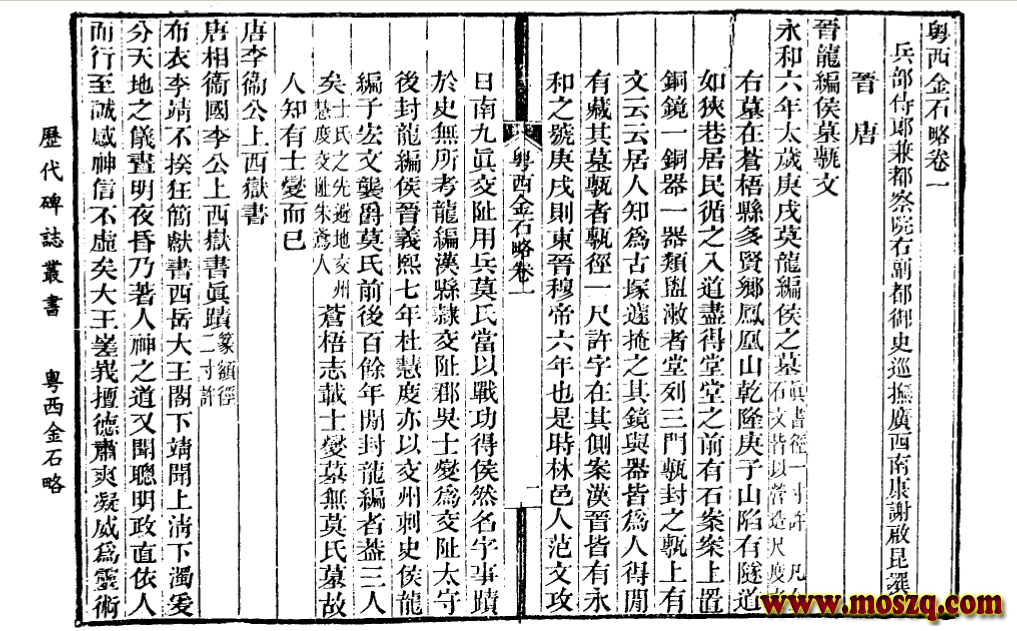 粵西金石略卷一
兵部侍郎兼都察院右副都御史巡撫廣西南康謝啟昆譔
晉 唐
晉龍編侯墓甎文
永和六年太歲庚戌莫龍編侯之墓真書徑一寸許凡
石文皆以營造尺度
右墓在蒼梧縣多賢鄉鳳凰山乾隆庚子山陷有隧道
如狹巷居民循之入道盡得堂堂之前有石案案上置
銅鏡一銅器一器類盥漱者堂列三門甎封之甎上有
文云云居人知為古塚遽掩之其鏡與器皆為人得閒
有藏其墓甎者甎徑一尺許字在其側案漢晉皆有永
和之號庚戌則東晉穆帝六年也是時林邑人范文攻
粵西金石略卷一
一
日南九眞交阯用兵莫氏當以戰功得侯然名字事蹟
於史無所考龍編漢縣隸交阯郡吳士燮為交阯太守
後封龍編侯晉義熙七年杜慧度亦以交州刺史侯龍
編子宏文襲爵莫氏前後百餘年閒封龍編者葢三人
矣士氏之先避地交州
慧度交阯朱鳶人蒼梧志載士燮墓無莫氏墓故
人知有士燮而已
唐李衞公上西嶽書
唐相衞國李公上西嶽書眞蹟篆額徑
二寸許
布衣李靖不揆狂簡獻書西岳大王閣下靖聞上淸下濁爰
分天地之儀晝明夜昏乃著人神之道又聞聰明政直依人
而行至誠感神信不虛矣大王嵳峩擅德肅爽凝威為靈術
歷代碑誌叢書 粵西金石略
www.moszq.com